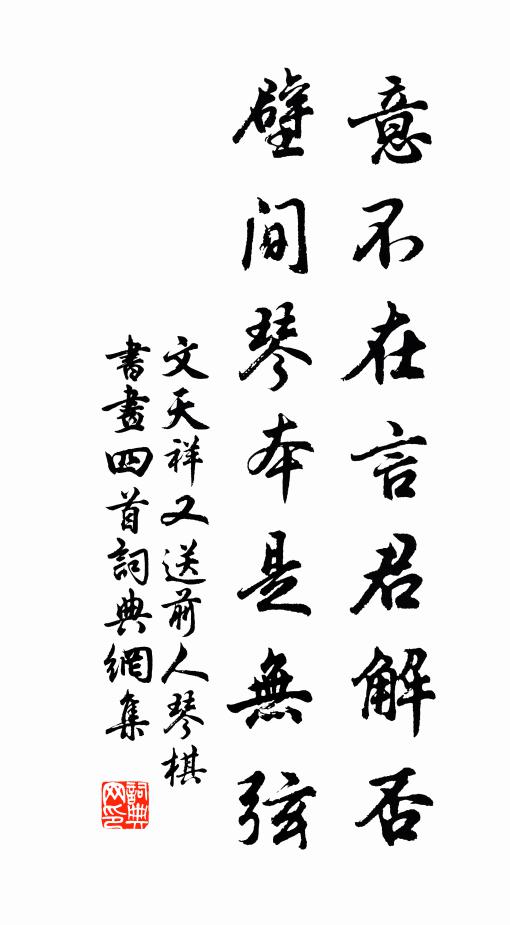 意不在言君解否
壁间琴本是無弦
文天祥又送前人琴棋
書畫四首詞典網集
詞典网印